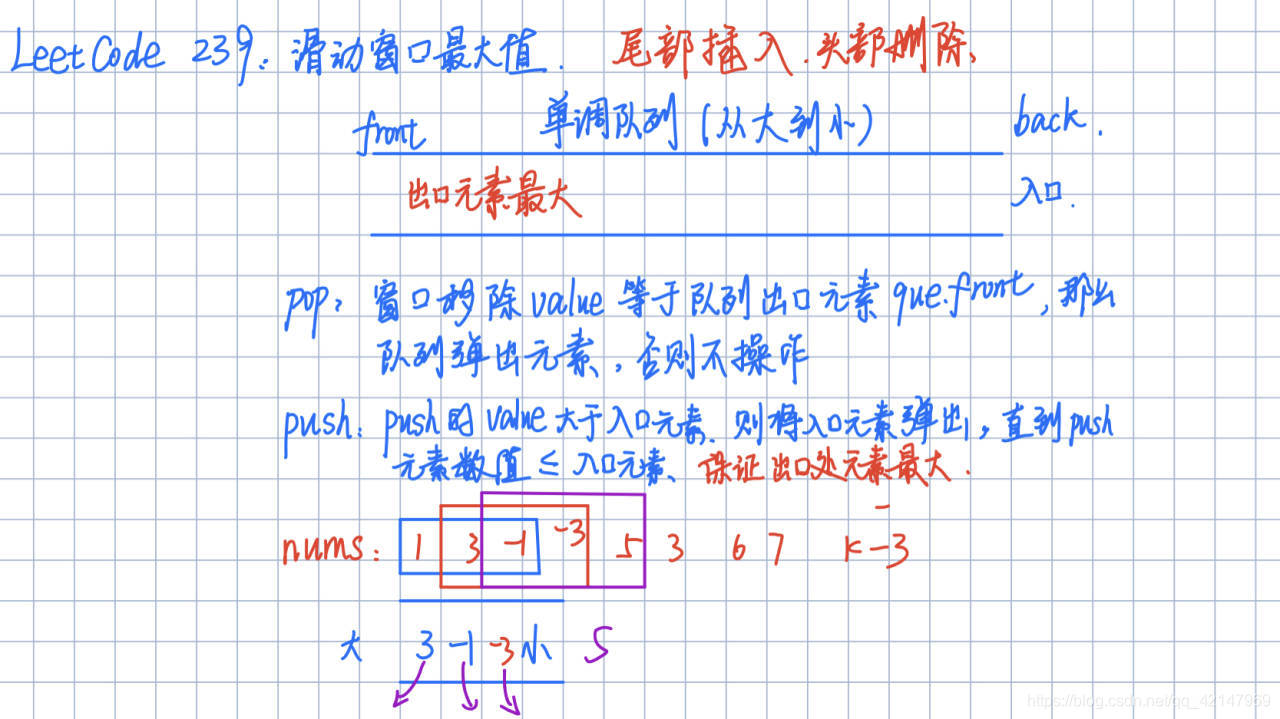 LeetCode 239. 滑动窗口最大值. 尾部插入.头部删除、
front 单调队列(从大到小) back.
出口元素最大 入口.
pop: 窗口移除value等于队列出口元素que.front,那么
队列弹出元素,否则不操作
push: push的value大于入口元素.则将入口元素弹出,直到push
元素数值≤入口元素、保证出口处元素最大.
nums: 1 3 -1 -3 5 3 6 7 k=3
大 3 -1 -3 小 5
https://blog.csdn.net/qq_42147969